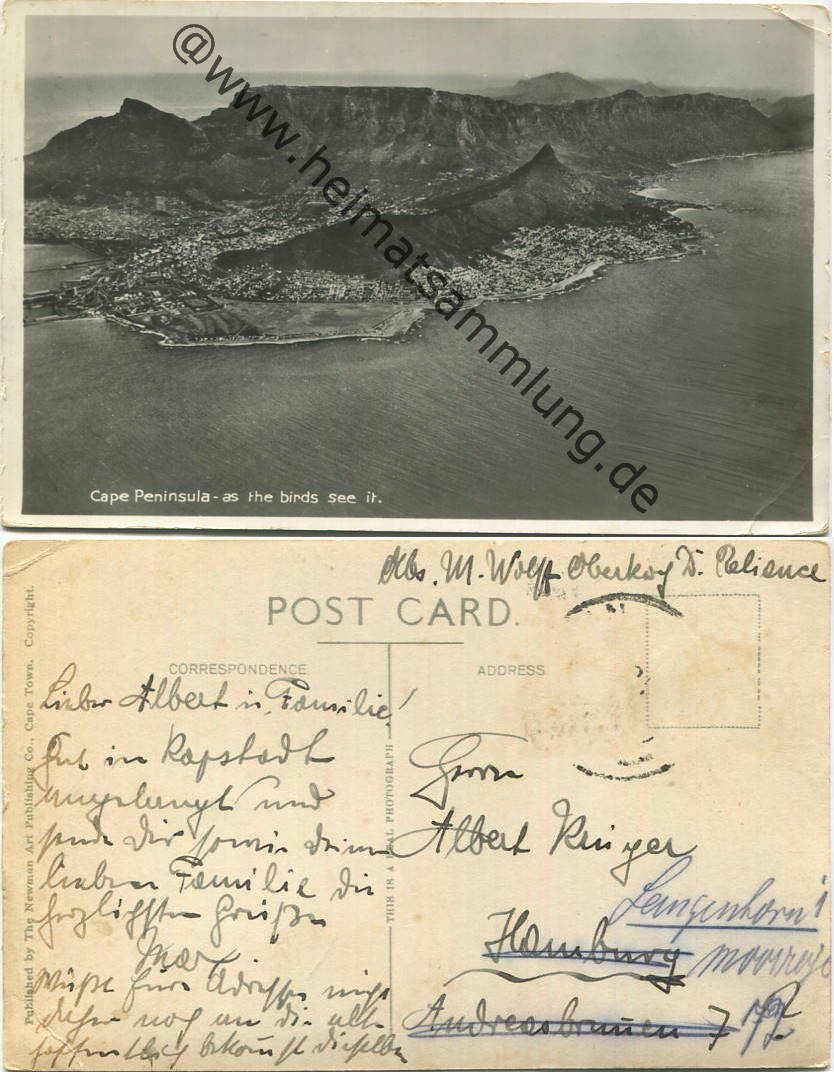 @www.heimatsammlung.de
Cape Peninsula - as the birds see it.
Abs. M. Wolff Oberkoch D. Reliance
POST CARD.
CORRESPONDENCE
ADDRESS
Published by The Newman Art Publishing Co., Cape Town. Copyright.
THIS IS A REAL PHOTOGRAPH
Lieber Albert u. Familie!
Gut in Kapstadt
angelangt und
sende Dir sowie deiner
lieben Familie die
herzlichsten Grüße
Max.
Wußte Eure Adresse nicht
daher noch an die alte
hoffentlich bekommst dieselbe
Herrn
Albert Krüger
Hamburg
Langenhorn 1
Andreasbrunnen 7